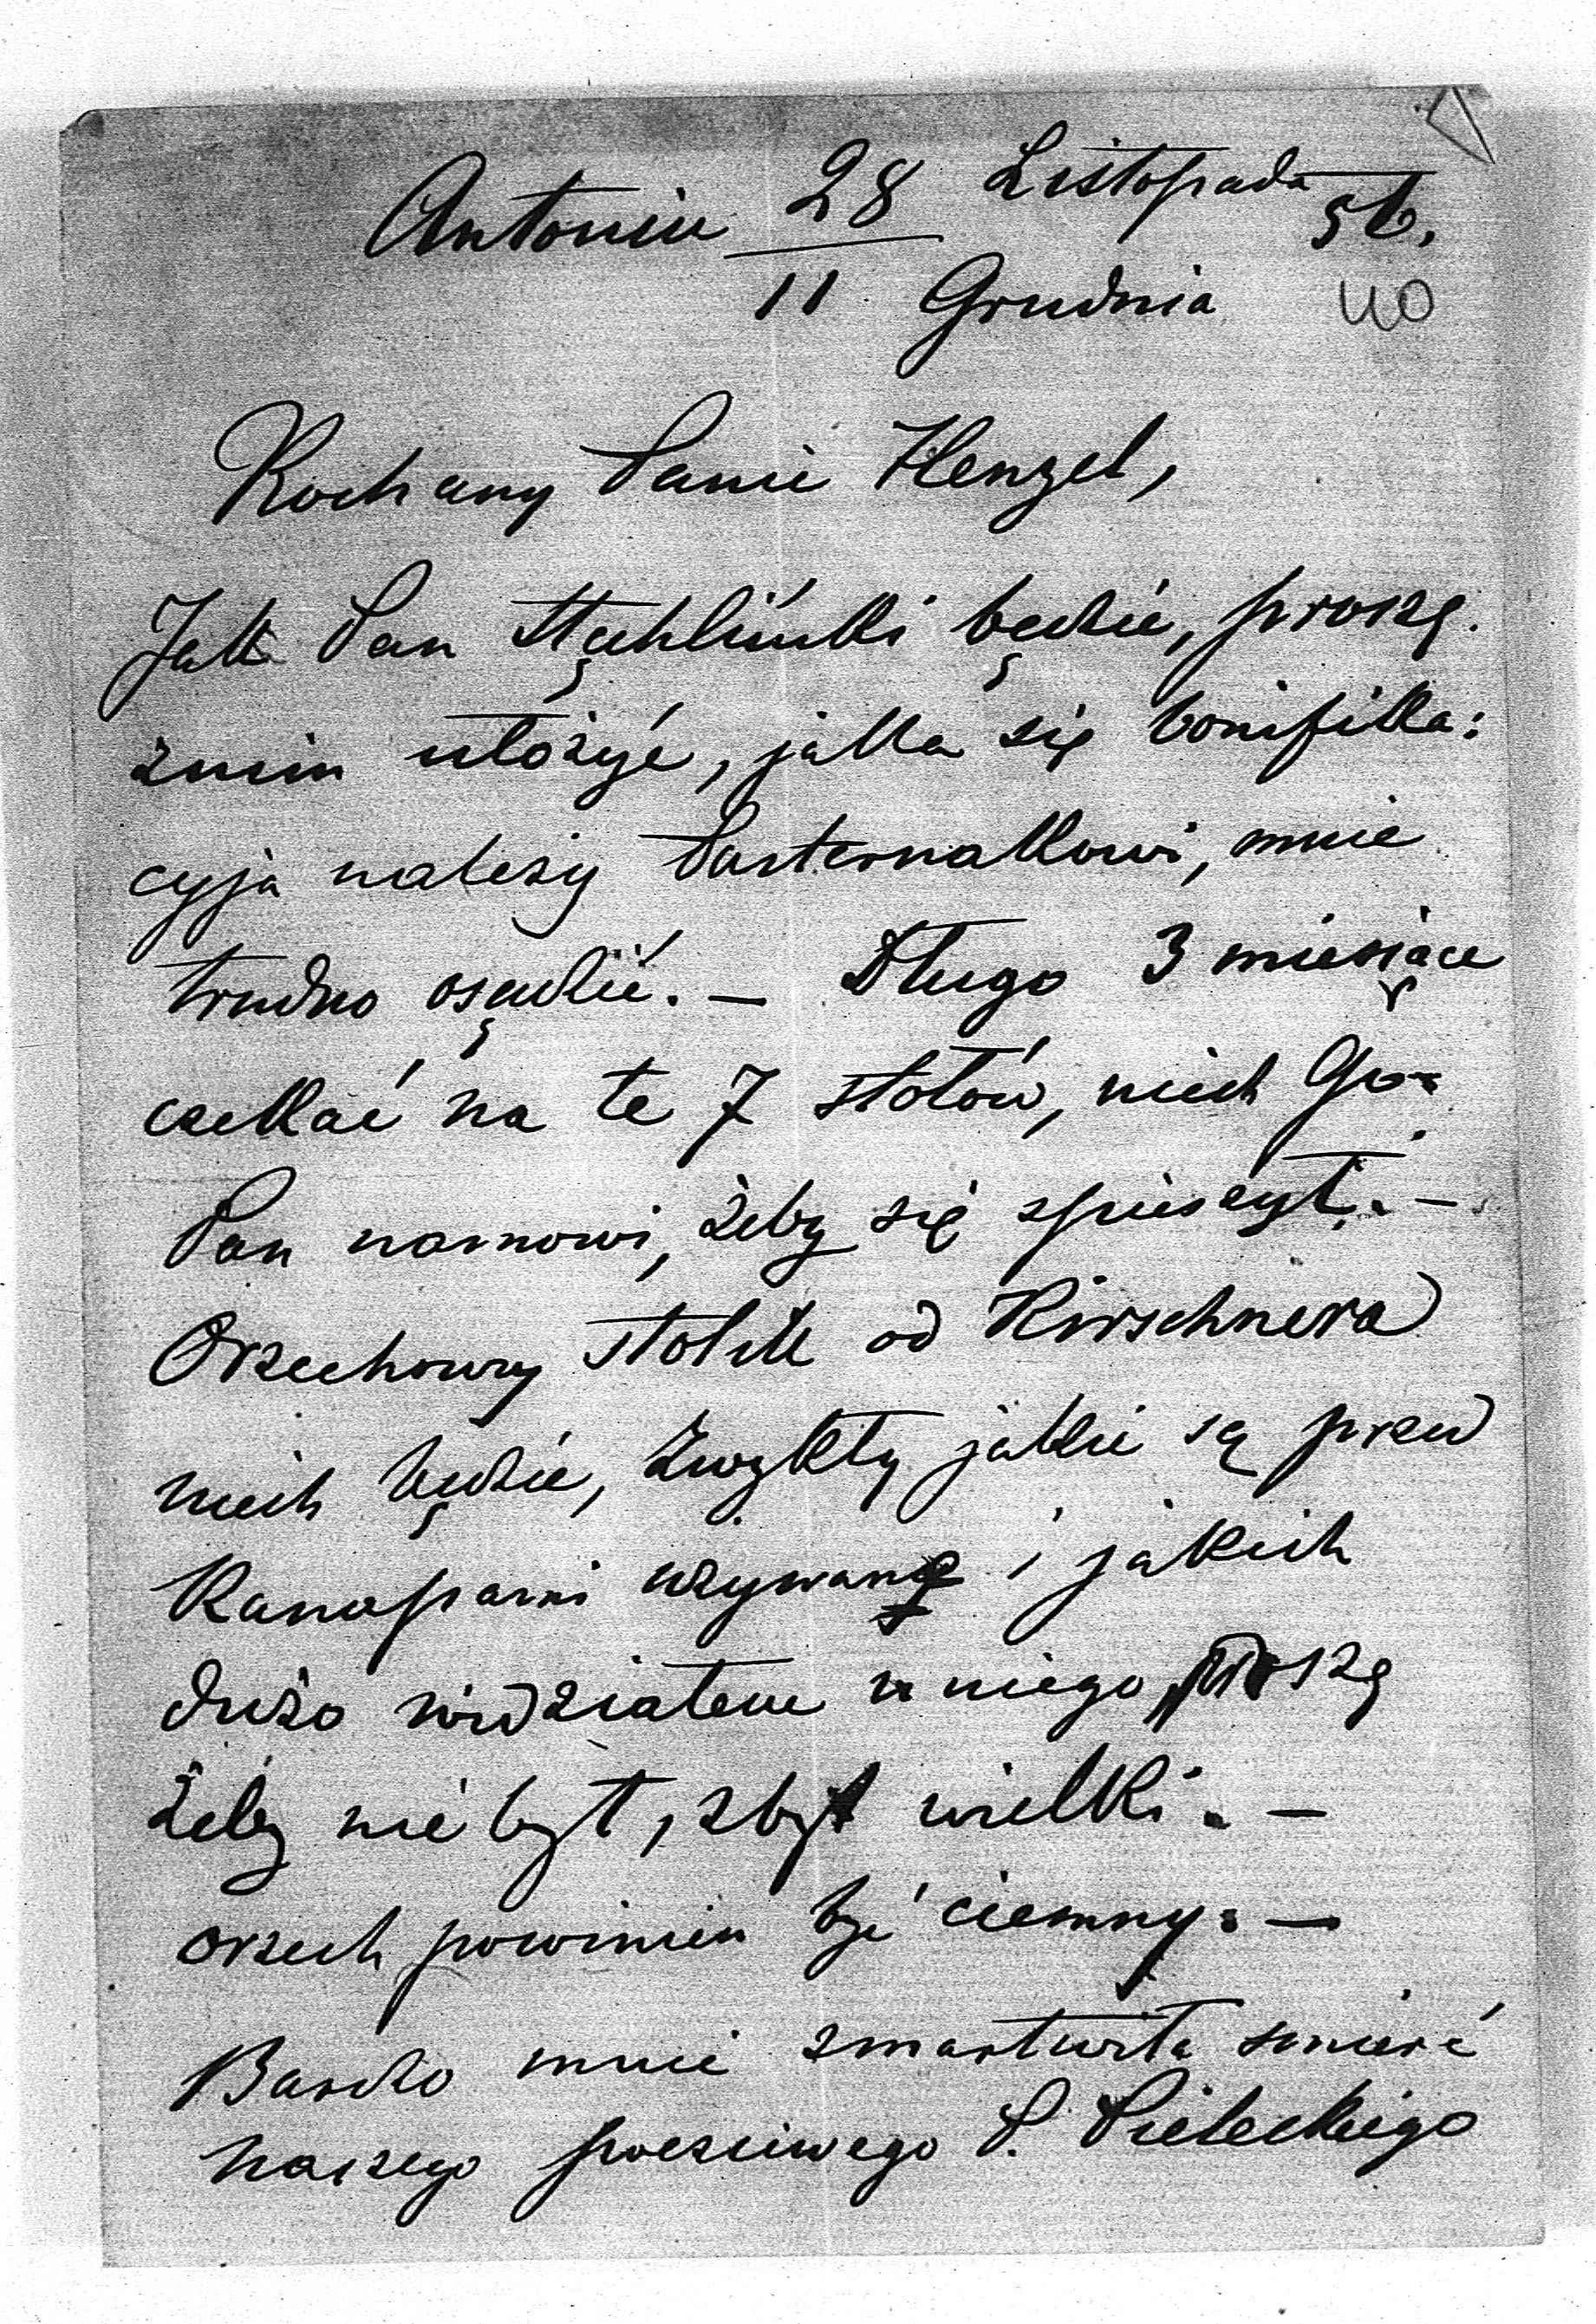 Antonin 28 Listopada
11 Grudnia 40
Kochany Panie Henzel,
Jak Pan będzie, proszę
znim ułożyć, jaka się bonifika:
cyja należy Pasternakowi, mnie
trudno osądzić. — Długo 3 miesiące
czekać na te 7 stołów, niech Go
Pan namowi, żeby się spieszył. —
Orzechowy stolik od Kirschnera
niech będzie, zwykły jakie są przed
Kanapami używane i jakich
dużo widziałem u niego, proszę
żeby nie był, zbyt wielki. —
orzech powinien być ciemny. —
Bardzo mnie zmartwiła śmierć
naszego poczciwego P.